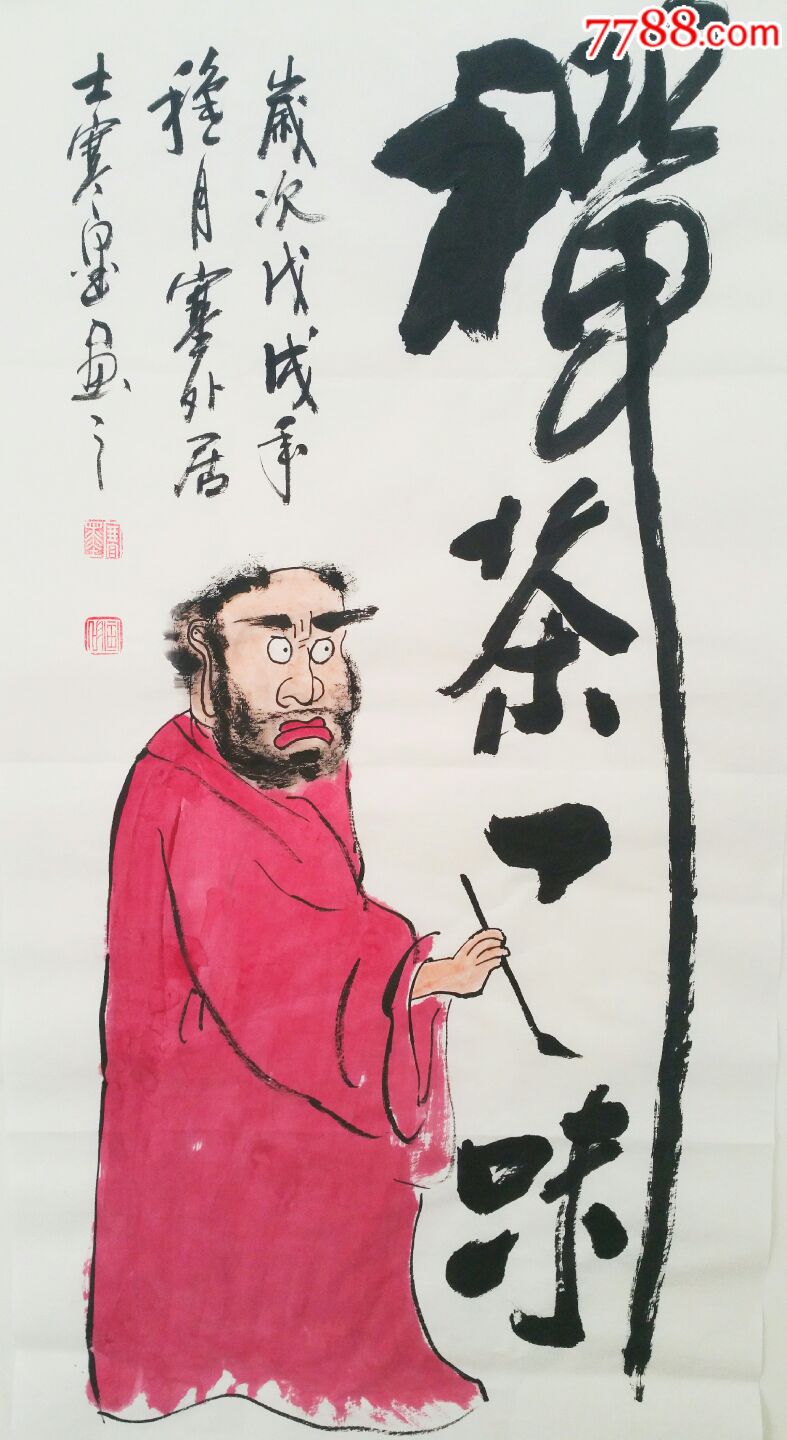 7788.com
禪茶一味
歲次戊戌年
月塞外居
士寒墨画之